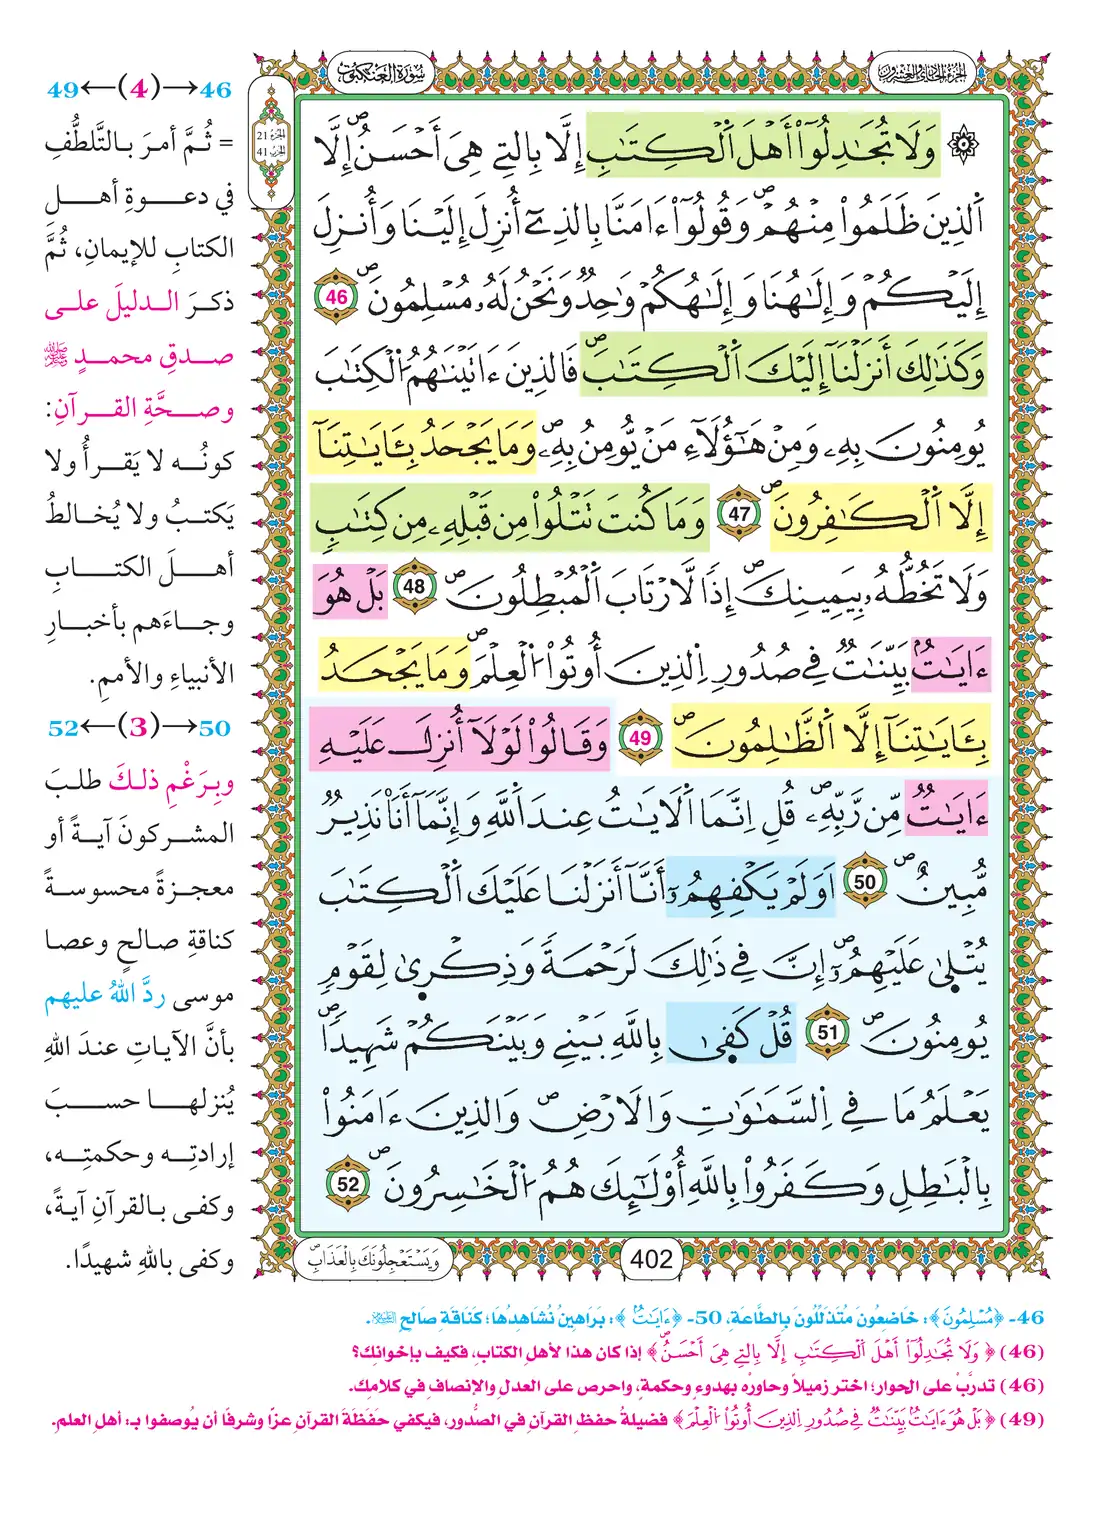 سورة العنكبوت
الجزء الحادي والعشرون
الجزء 21
الحزب 41
وَلَا تُجَٰدِلُوٓاْ أَهْلَ اَ۬لْكِتَٰبِ إِلَّا بِالتِے هِيَ أَحْسَنُۖ إِلَّا
اَ۬لذِينَ ظَلَمُواْ مِنْهُمْۖ وَقُولُوٓاْ ءَامَنَّا بِالذِےٓ أُنزِلَ إِلَيْنَا وَأُنزِلَ
إِلَيْكُمْ وَإِلَٰهُنَا وَإِلَٰهُكُمْ وَٰحِدٞ وَنَحْنُ لَهُۥ مُسْلِمُونَۖ 46
وَكَذَٰلِكَ أَنزَلْنَآ إِلَيْكَ اَ۬لْكِتَٰبَۖ فَالذِينَ ءَاتَيْنَٰهُمُ اُ۬لْكِتَٰبَ
يُومِنُونَ بِهِۦ وَمِنْ هَٰٓؤُلَآءِ مَنْ يُّومِنُ بِهِۦۖ وَمَا يَجْحَدُ بِـَٔايَٰتِنَآ
إِلَّا اَ۬لْكَٰفِرُونَۖ 47 وَمَا كُنتَ تَتْلُواْ مِن قَبْلِهِۦ مِن كِتَٰبٖ
وَلَا تَخُطُّهُۥ بِيَمِينِكَۖ إِذاٗ لَّارْتَابَ اَ۬لْمُبْطِلُونَۖ 48 بَلْ هُوَ
ءَايَٰتُۢ بَيِّنَٰتٞ فِے صُدُورِ اِ۬لذِينَ أُوتُواْ اُ۬لْعِلْمَۖ وَمَا يَجْحَدُ
بِـَٔايَٰتِنَآ إِلَّا اَ۬لظَّٰلِمُونَۖ 49 وَقَالُواْ لَوْلَآ أُنزِلَ عَلَيْهِ
ءَايَٰتٞ مِّن رَّبِّهِۦۖ قُلِ اِنَّمَا اَ۬لَايَٰتُ عِندَ اَ۬للَّهِ وَإِنَّمَآ أَنَا نَذِيرٞ
مُّبِينٌۖ 50 اَوَلَمْ يَكْفِهِمُۥٓ أَنَّآ أَنزَلْنَا عَلَيْكَ اَ۬لْكِتَٰبَ
يُتْلَىٰ عَلَيْهِمُۥٓۖ إِنَّ فِے ذَٰلِكَ لَرَحْمَةٗ وَذِكْرَىٰ لِقَوْمٖ
يُومِنُونَۖ 51 قُلْ كَفَىٰ بِاللَّهِ بَيْنِے وَبَيْنَكُمْ شَهِيداٗۖ
يَعْلَمُ مَا فِے اِ۬لسَّمَٰوَٰتِ وَالَارْضِۖ وَالذِينَ ءَامَنُواْ
بِالْبَٰطِلِ وَكَفَرُواْ بِاللَّهِ أُوْلَٰٓئِكَ هُمُ اُ۬لْخَٰسِرُونَۖ 52
وَيَسْتَعْجِلُونَكَ بِالْعَذَابِۖ
402
46→(4)←49
= ثُمَّ أمرَ بالتَّلطُّفِ
في دعوةِ أهلِ
الكتابِ للإيمانِ، ثُمَّ
ذكرَ الدليلَ على
صدقِ محمدٍ ﷺ
وصحَّةِ القرآنِ:
كونُه لا يَقرأُ ولا
يَكتبُ ولا يُخالطُ
أهلَ الكتابِ
وجاءَهم بأخبارِ
الأنبياءِ والأممِ.
50→(3)←52
وبِرَغْمِ ذلكَ طلبَ
المشركونَ آيةً أو
معجزةً محسوسةً
كناقةِ صالحٍ وعصا
موسى ردَّ اللهُ عليهم
بأنَّ الآياتِ عندَ اللهِ
يُنزلها حسبَ
إرادتِه وحكمتِه،
وكفى بالقرآنِ آيةً،
وكفى باللهِ شهيدًا.
46- ﴿مُسْلِمُونَ﴾: خاضِعُونَ مُتَذلِّلُونَ بالطَّاعَةِ، 50- ﴿ءَايَٰتٞ﴾: بَراهِينُ نُشاهِدُهَا؛ كَنَاقَةِ صَالحٍ عليه السلام.
(46) ﴿وَلَا تُجَٰدِلُوٓاْ أَهْلَ اَ۬لْكِتَٰبِ إِلَّا بِالتِے هِيَ أَحْسَنُۖ﴾ إذا كان هذا لأهلِ الكتابِ، فكيف بإخوانِك؟
(46) تدرَّبْ على الحوار؛ اختر زميلاً وحاورْه بهدوءٍ وحكمةٍ، واحرص على العدلِ والإنصافِ في كلامِك.
(49) ﴿بَلْ هُوَ ءَايَٰتُۢ بَيِّنَٰتٞ فِے صُدُورِ اِ۬لذِينَ أُوتُواْ اُ۬لْعِلْمَ﴾ فضيلةُ حفظِ القرآنِ في الصُّدور، فيكفي حَفَظَةَ القرآنِ عزّاً وشرفًا أن يُوصفوا بـ: أهلِ العلمِ.